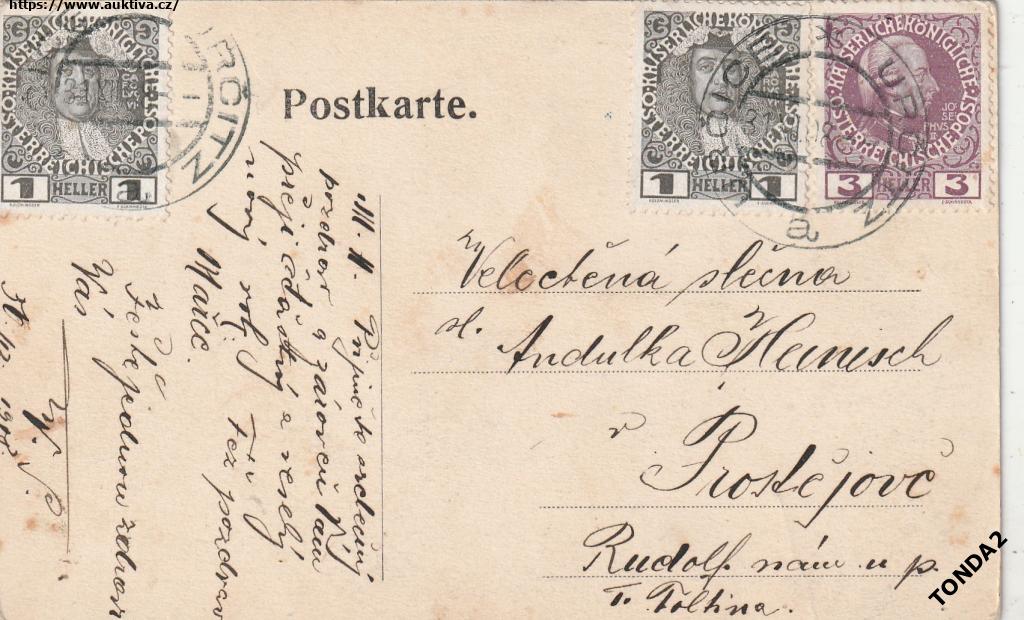 https://www.auktiva.cz/
KAISERLICHE KÖNIGLICHE
ÖSTERREICHISCHE POST
1 HELLER 1
URČITZ
Postkarte.
KAISERLICHE KÖNIGLICHE
ÖSTERREICHISCHE POST
1 HELLER 1
KAISERLICHE KÖNIGLICHE
ÖSTERREICHISCHE POST
3 HELLER 3
Veloctěná slečna
sl. Andulka Heinisch
v Prostějově
Rudolf. nám u p.
T. Foltina.
M. A. Přijměte srdečný
pozdrav a zároveň Vám
přeji šťastný a veselý
nový rok
Též pozdrav
Mařce.
Ještě jednou zdraví
Vás
V. S.
TONDA2